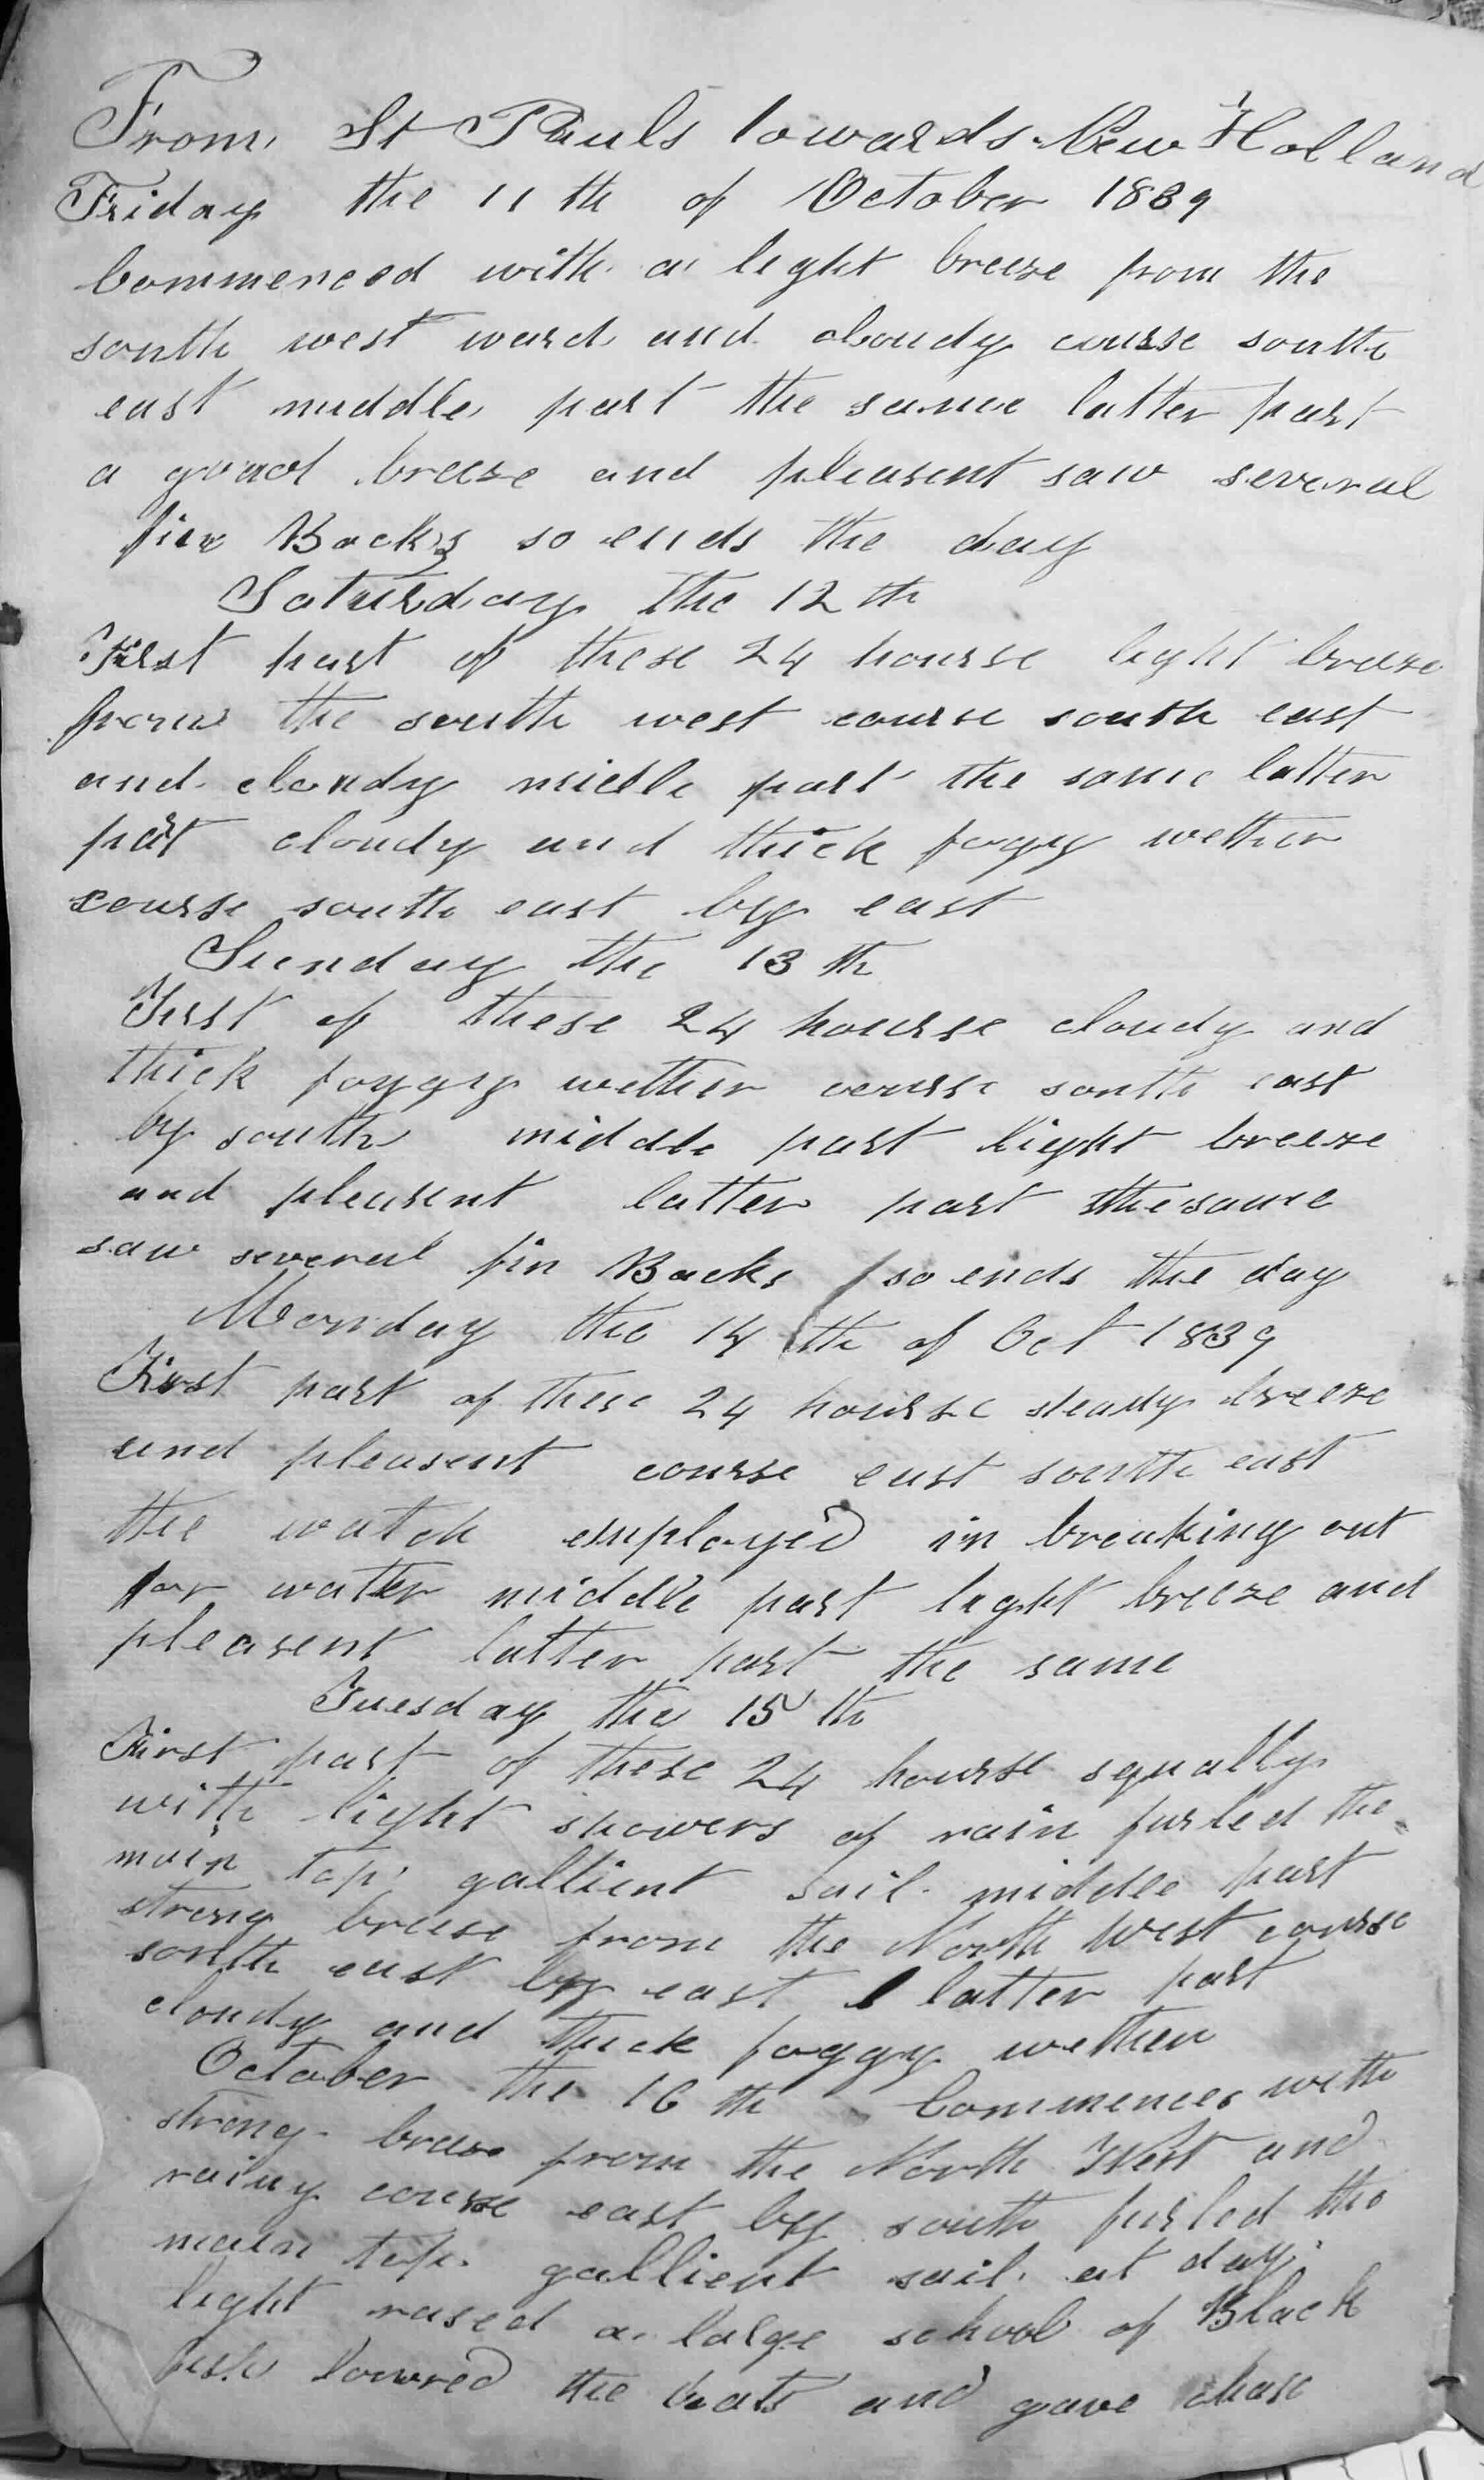 From St Pauls towards New Holland
Friday the 11 th of October 1839
Commenced with a light breeze from the
south west ward and cloudy course south
east middle part the same latter part
a good breeze and pleasent saw several
fin Backs so ends the day
Saturday the 12 th
First part of these 24 hourse light breeze
from the south west course south east
and cloudy midle part the same latter
part cloudy and thick fogy wether
course south east by east
Sunday the 13 th
First of these 24 hourse cloudy and
thick foggy wether course south east
by south middle part light breeze
and plesent latter part the same
saw several fin Backs so ends the day
Monday the 14 th of Oct 1839
First part of these 24 hourse steady breeze
and pleasent course east south east
the watch employed in breaking out
for water middle part light breeze and
pleasent latter part the same
Tuesday the 15 th
First part of these 24 hourse squally
with light showers of rain furled the
main top gallient sail middle part
strong breese from the North West course
south east by east latter part
cloudy and thick foggy wether
October the 16 th Commences with
strong breese from the North West and
rainy course east by south furled the
main top gallient sail at day
light rased a large school of Black
fish lowered the boats and gave chase